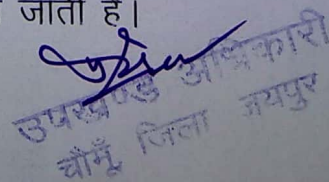 जाता है।
उपखण्ड अधिकारी
चौमूँ, जिला जयपुर